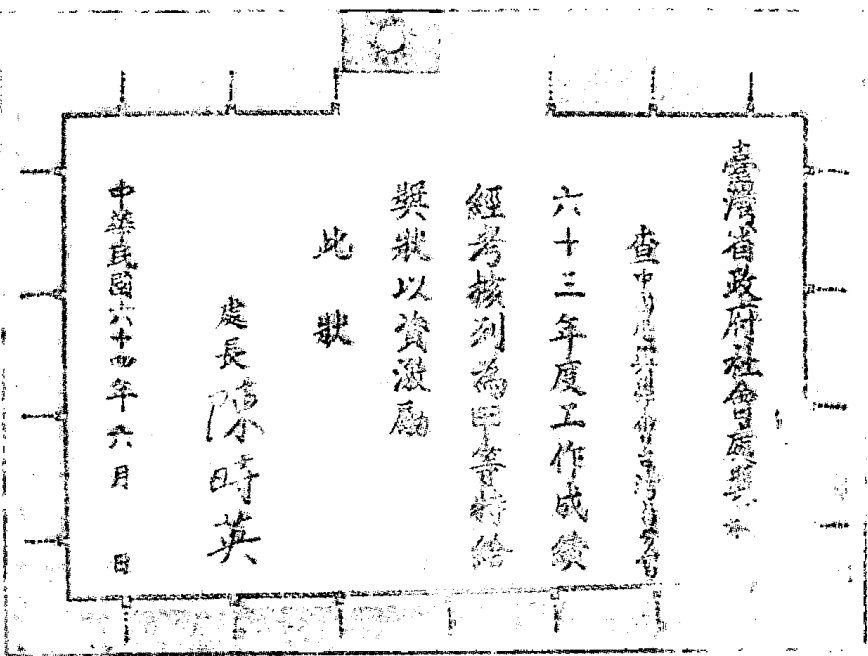 臺灣省政府社會處獎狀
查中國 學會台灣省分會
六十三年度工作成績
經考核列為甲等特給
獎狀以資激勵
此狀
處長陳時英
中華民國六十四年六月 日